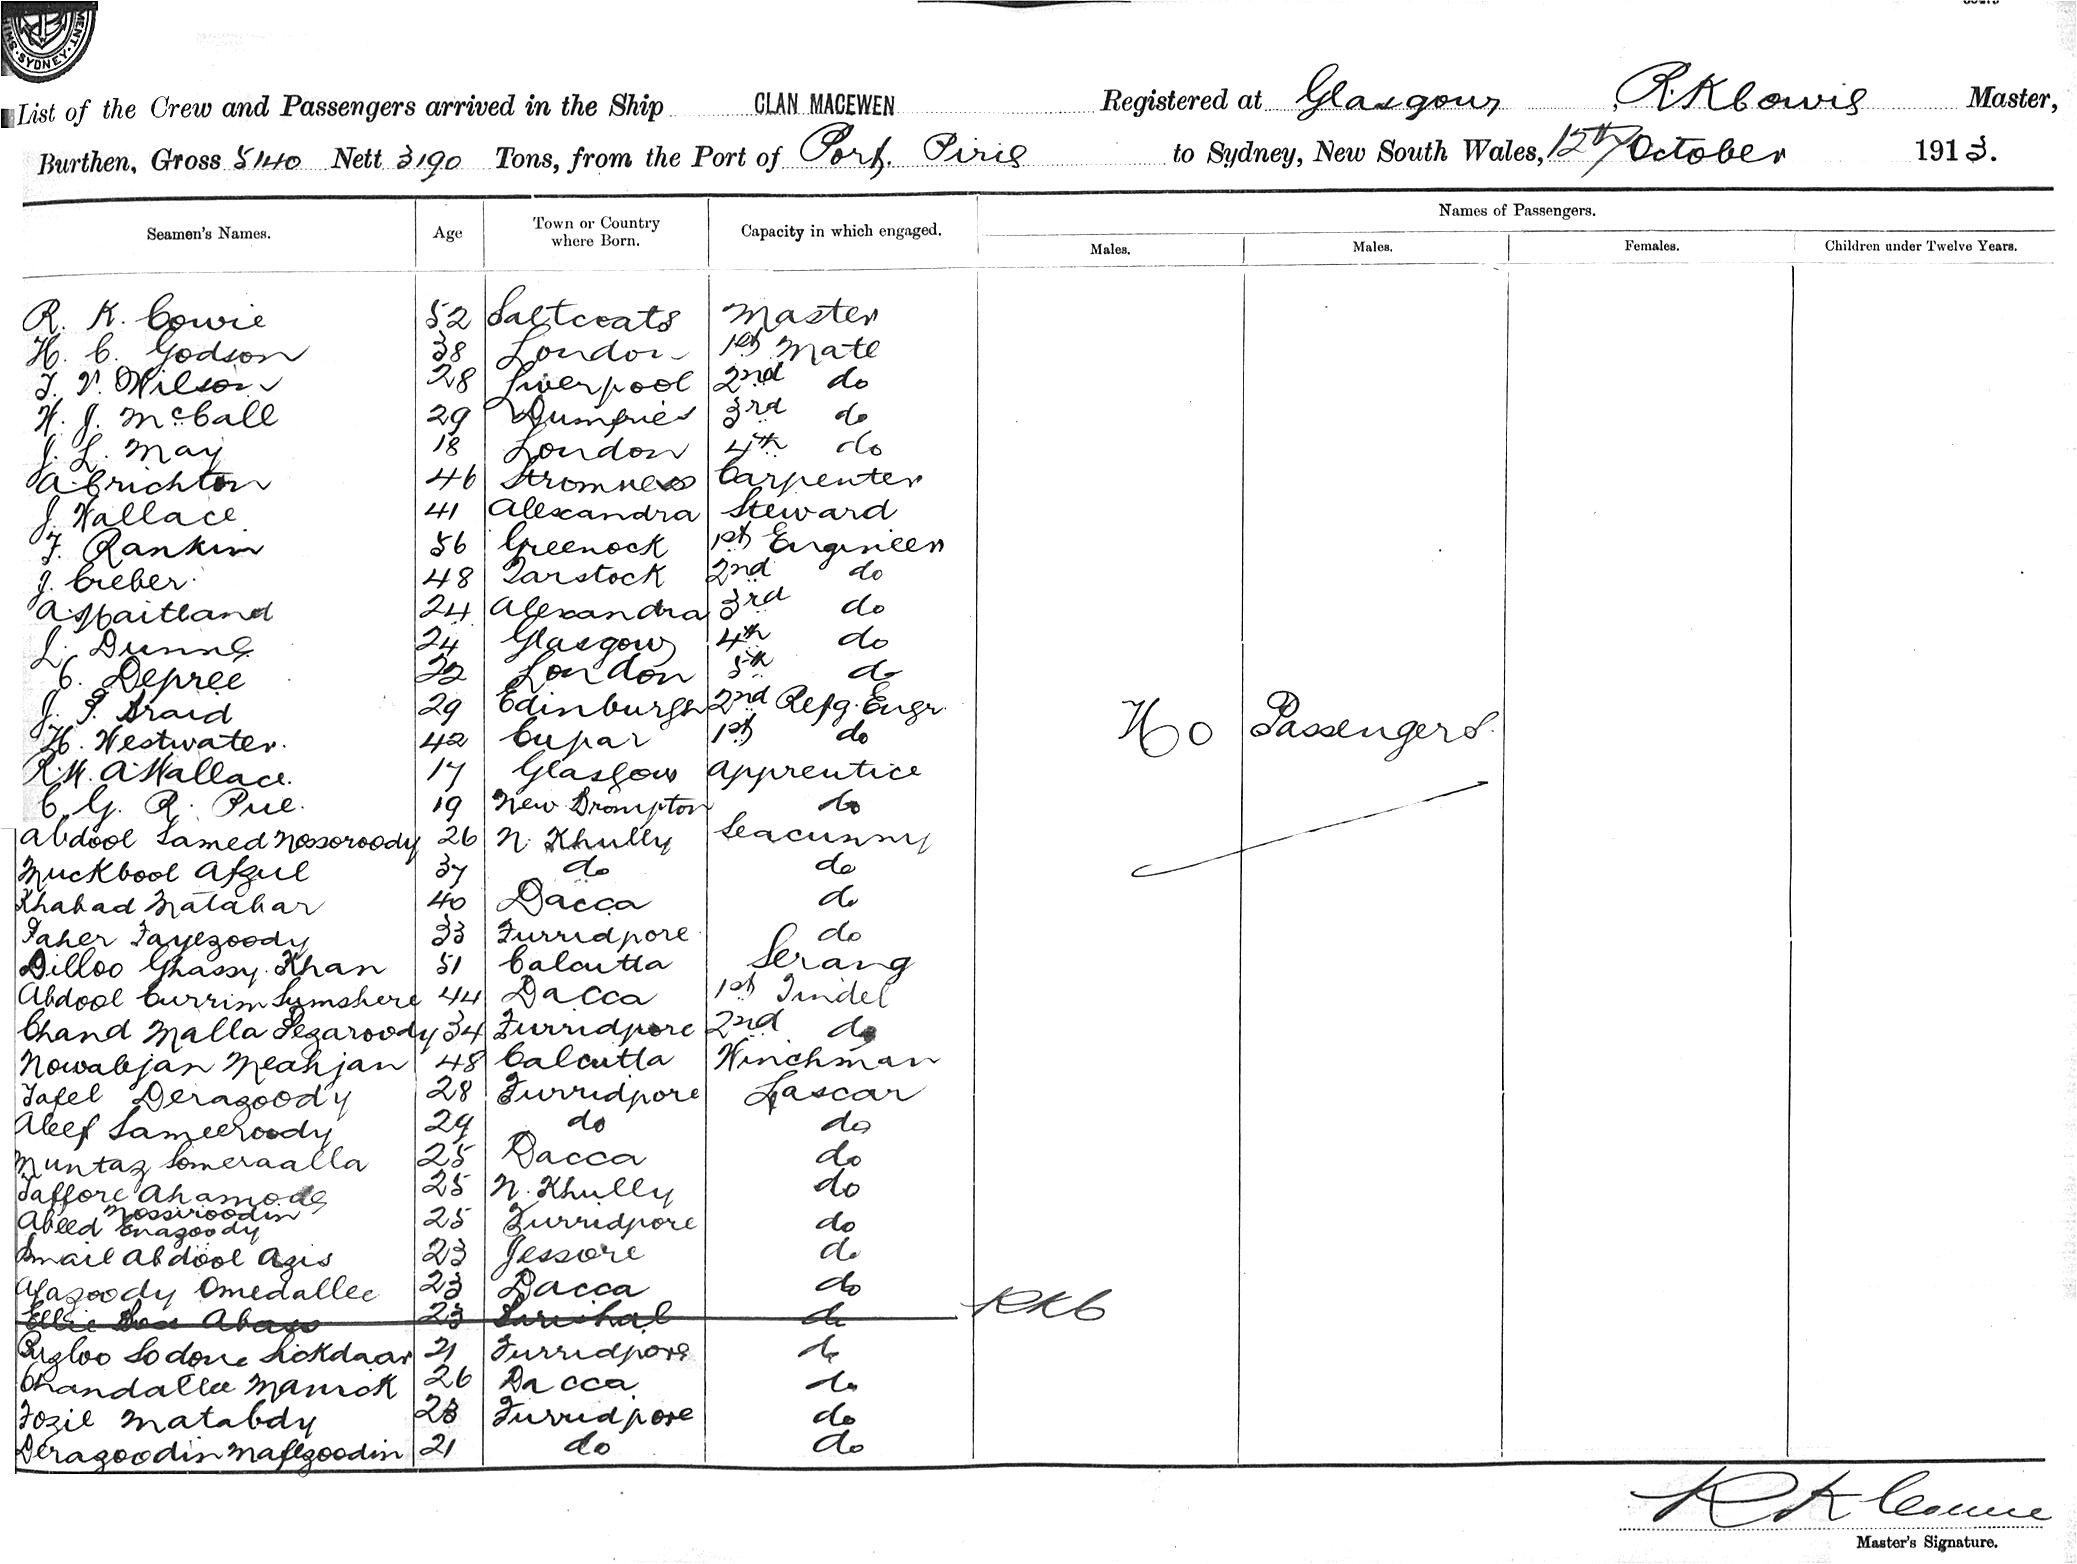 SYDNEY
List of the Crew and Passengers arrived in the Ship CLAN MACEWEN Registered at Glasgow, R. K. Cowie Master,
Burthen, Gross 5140 Nett 3190 Tons, from the Port of Port Pirie to Sydney, New South Wales, 12th October 1913.
Names of Passengers.
Seamen's Names. Age Town or Country where Born. Capacity in which engaged. Males. Males. Females. Children under Twelve Years.
R. K. Cowie 52 Saltcoats Master
H. C. Godson 38 London 1st Mate
T. V. Wilson 28 Liverpool 2nd do
H. J. McCall 29 Dumfries 3rd do
J. L. May 18 London 4th do
A. Crichton 46 Stromness Carpenter
J. Wallace 41 Alexandra Steward
J. Rankin 56 Greenock 1st Engineer
J. Creber 48 Tarstock 2nd do
A. Maitland 24 Alexandra 3rd do
L. Dunne 24 Glasgow 4th do
C. Depree 22 London 5th do
J. T. Braid 29 Edinburgh 2nd Refg. Engr.
H. Westwater. 42 Cupar 1st do
No Passengers.
R. W. A. Wallace. 17 Glasgow Apprentice
C. G. R. Pue. 19 New Brompton do
Abdool Samed Nossoroody 26 N. Khully Seacunny
Muckbool Afzul 37 do do
Khabad Matabar 40 Dacca do
Taher Fayezoody 33 Furridpore do
Dilloo Ghassy Khan 51 Calcutta Serang
Abdool Currim Sumshere 44 Dacca 1st Tindel
Chand Malla Pezaroody 34 Furridpore 2nd do
Nowabjan Meahjan 48 Calcutta Winchman
Tafel Derazoody 28 Furridpore Lascar
Aleef Sameeroody 29 do do
Muntaz Someraalla 25 Dacca do
Taffore Ahamode 25 N. Khully do
Abeed Nossiroodin Enazoody 25 Furridpore do
Smail Abdool Azis 23 Jessore do
Afazoody Omedallee 23 Dacca do
Ellie Abass 23 Burishal do RKC
Fuzloo Sodone Sickdaar 21 Furridpore do
Chandallee Manick 26 Dacca do
Fozil Matabdy 28 Furridpore do
Derazoodin Mafezoodin 21 do do
R K Cowie
Master's Signature.